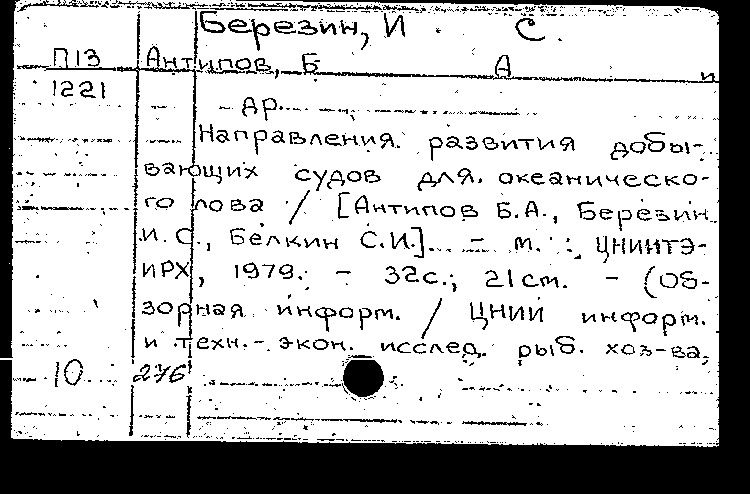 Березин, И. С.
П13 Антипов, Б А и
1221 др.
Направления развития добы-
вающих судов для океаническо-
го лова / [Антипов Б.А., Березин
И.С., Белкин С.И.]. - М. : ЦНИИТЭ-
ИРХ, 1979. - 32с.; 21см. - (Об-
зорная информ. / ЦНИИ информ.
и техн.-экон. исслед. рыб. хоз-ва,
10 276